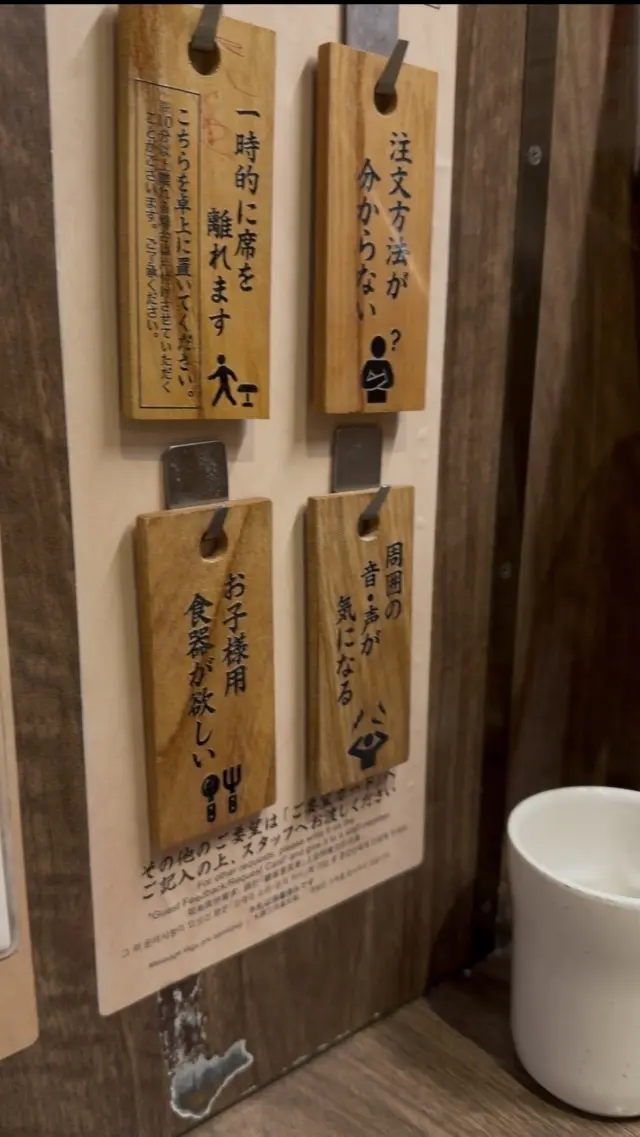 一時的に席を
離れます
こちらを卓上に置いてください。
ことがございます。ご了承ください。
注文方法が
分からない
?
お子様用
食器が欲しい
周囲の
音・声が
気になる
その他のご要望は「ご要望カード」へ
ご記入の上、スタッフへお渡しください。
For other requests, please write it on the
"Guest Feedback/Request Card" and give it to a staff member.